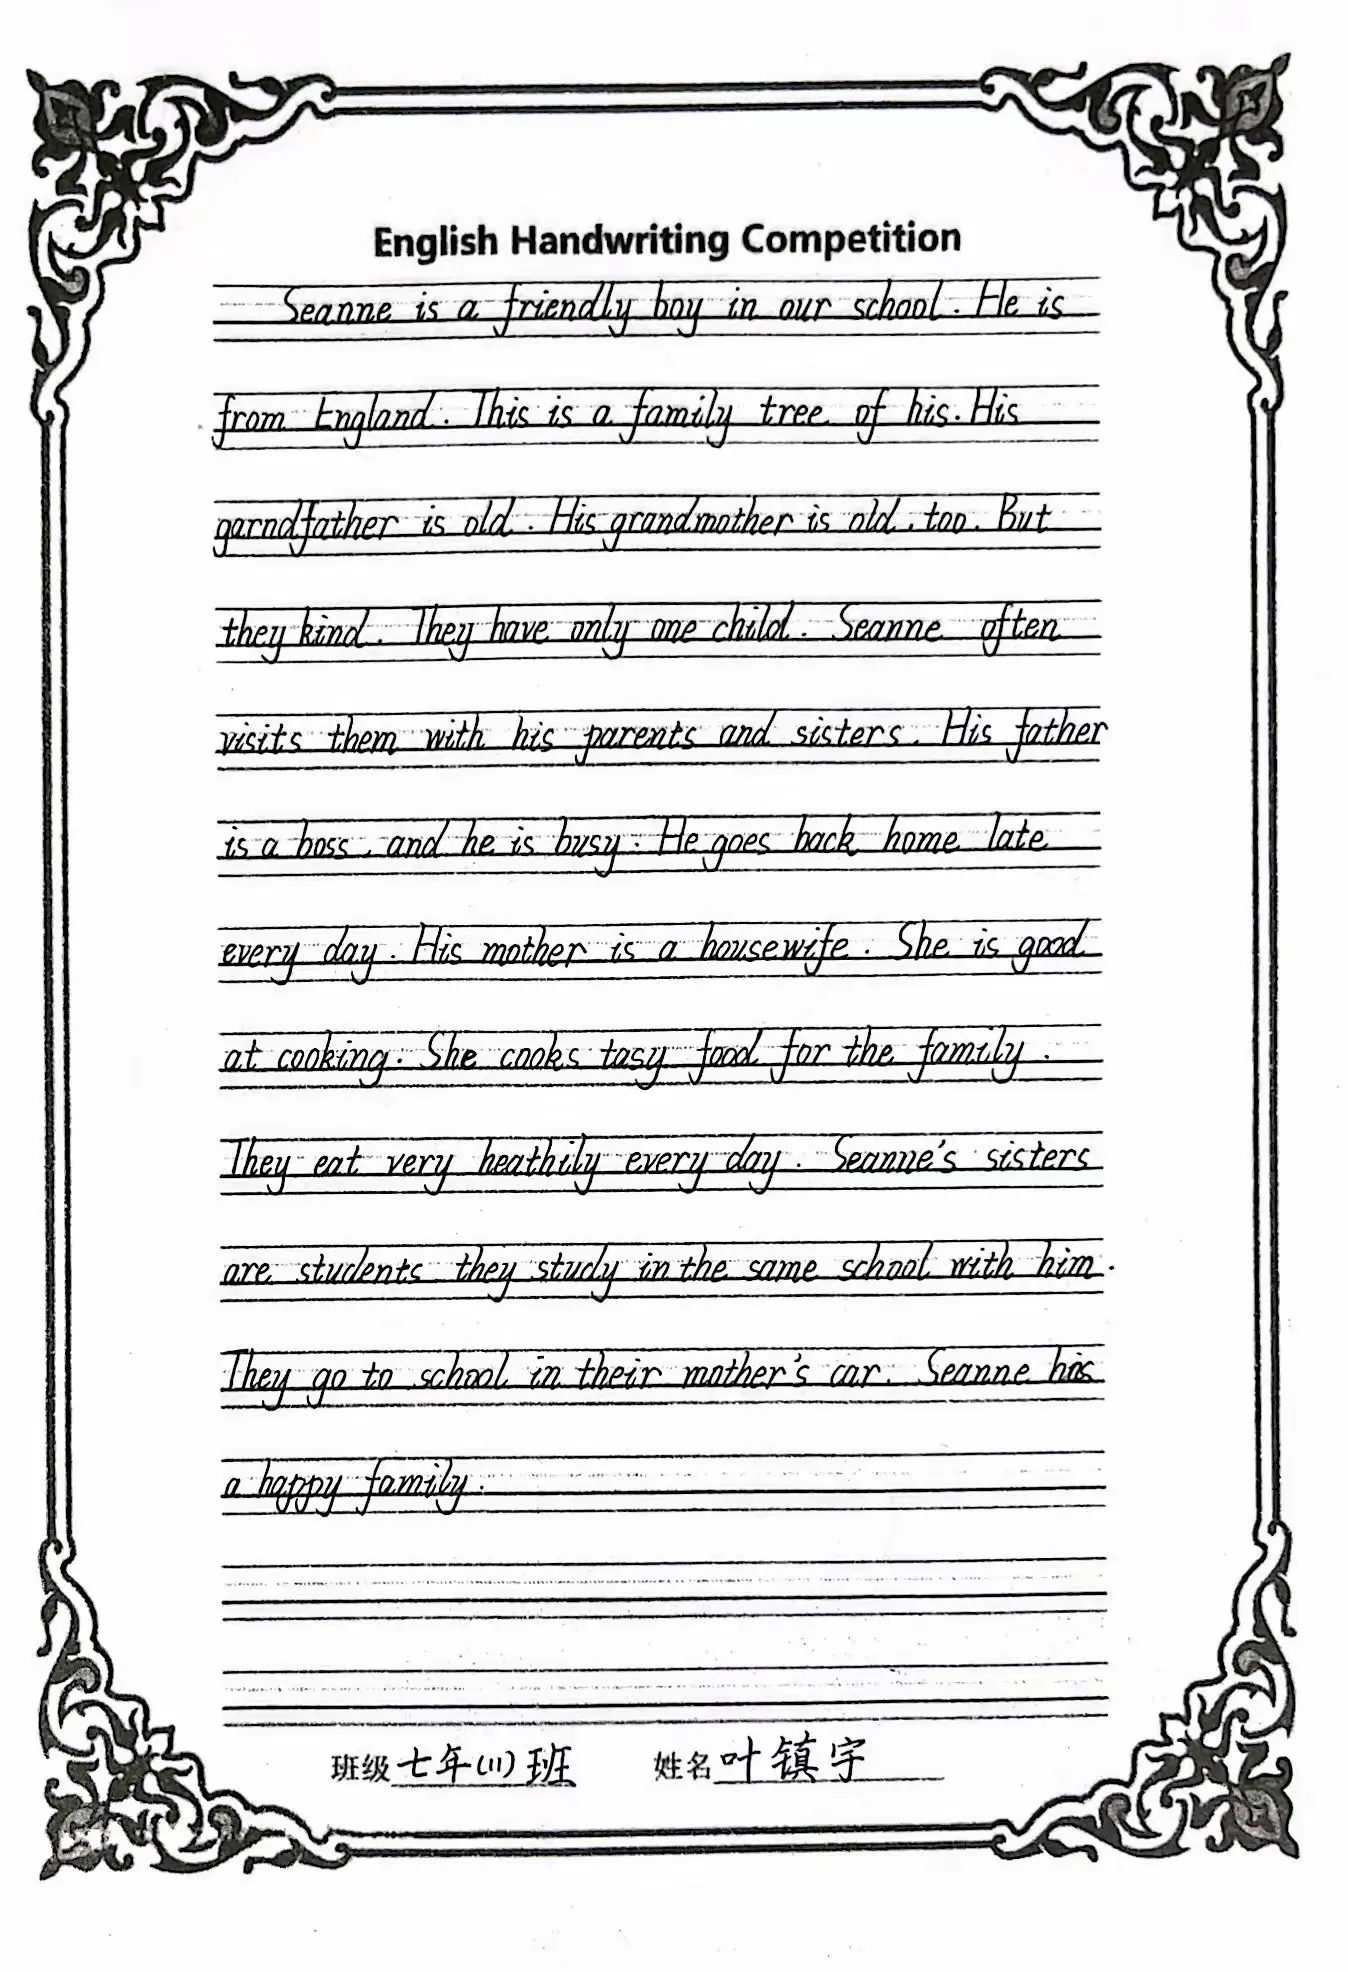 English Handwriting Competition
Seanne is a friendly boy in our school. He is
from England. This is a family tree of his. His
garndfather is old. His grandmother is old, too. But
they kind. They have only one child. Seanne often
visits them with his parents and sisters. His father
is a boss, and he is busy. He goes back home late
every day. His mother is a housewife. She is good
at cooking. She cooks tasy food for the family.
They eat very heathily every day. Seanne's sisters
are students they study in the same school with him.
They go to school in their mother's car. Seanne has
a happy family.
班级 七年(11)班 姓名 叶镇宇